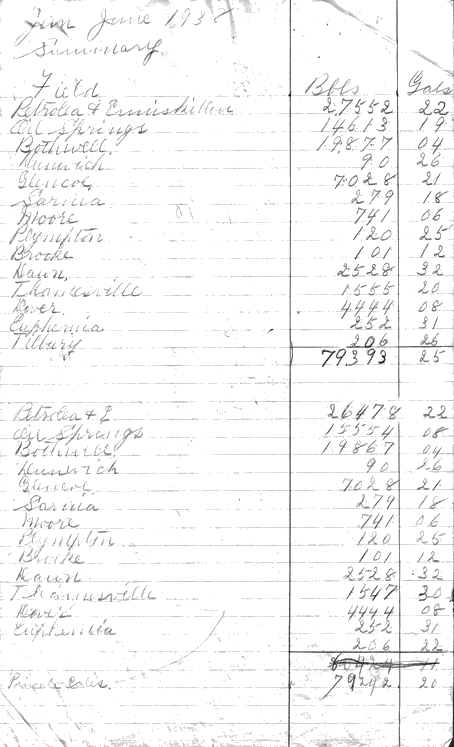 Jun June 1938
Summary
Field Bbls Gals
Petrolea & Enniskillen 27552 22
Oil Springs 14613 19
Bothwell. 19877 04
Dunwich 90 26
Glencoe, 7028 21
Sarnia 279 18
Moore 741 06
Plympton 120 25
Brooke 101 12
Dawn, 2528 32
Thamesville 1555 20
Dover. 4444 08
Euphemia 252 31
Tilbury 206 26
79393 25
Petrolea & E. 26478 22
Oil Springs 15554 08
Bothwell 19867 04
Dunwich 90 26
Glencoe, 7028 21
Sarnia 279 18
Moore 741 06
Plympton 120 25
Brooke 101 12
Dawn 2528 32
Thamesville 1547 30
Dover 4444 08
Euphemia 252 31
206 22
80424 11
Private Sales. 79292 20